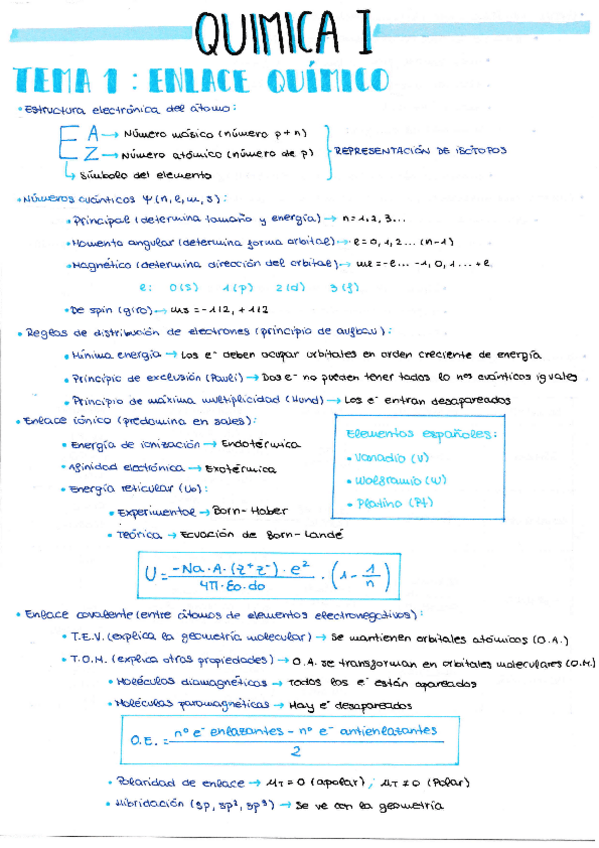 QUIMICA I
TEMA 1 : ENLACE QUÍMICO
• Estructura electrónica del átomo:
E A → Número másico (número p + n)
Z → Número atómico (número de p)
REPRESENTACIÓN DE ISÓTOPOS
↳ Símbolo del elemento
• Números cuánticos Ψ (n, l, m, s):
• Principal (determina tamaño y energía) → n = 1, 2, 3...
• Momento angular (determina forma orbital) → l = 0, 1, 2... (n-1)
• Magnético (determina dirección del orbital) → ml = -l... -1, 0, 1... +l
l: 0(s) 1(p) 2(d) 3(f)
• De spin (giro) → ms = -1/2, +1/2
• Reglas de distribución de electrones (principio de aufbau):
• Mínima energía → Los e⁻ deben ocupar orbitales en orden creciente de energía
• Principio de exclusión (Pauli) → Dos e⁻ no pueden tener todos lo nos cuánticos iguales
• Principio de máxima multiplicidad (Hund) → Los e⁻ entran desapareados
• Enlace iónico (predomina en sales):
• Energía de ionización → Endotérmica
• Afinidad electrónica → Exotérmica
• Energía reticular (U₀):
• Experimental → Born-Haber
• Teórica → Ecuación de Born-Landé
Elementos españoles:
• Vanadio (V)
• Wolframio (W)
• Platino (Pt)
U = -Na · A · (z⁺ z⁻) · e² / 4π · ε₀ · d₀ · (1 - 1/n)
• Enlace covalente (entre átomos de elementos electronegativos):
• T.E.V. (explica la geometría molecular) → Se mantienen orbitales atómicos (O.A.)
• T.O.M. (explica otras propiedades) → O.A. se transforman en orbitales moleculares (O.M.)
• Moléculas diamagnéticas → Todos los e⁻ están apareados
• Moléculas paramagnéticas → Hay e⁻ desapareados
O.E. = nº e⁻ enlazantes - nº e⁻ antienlazantes / 2
• Polaridad de enlace → μT = 0 (apolar) ; μT ≠ 0 (Polar)
• Hibridación (sp, sp², sp³) → Se ve con la geometría